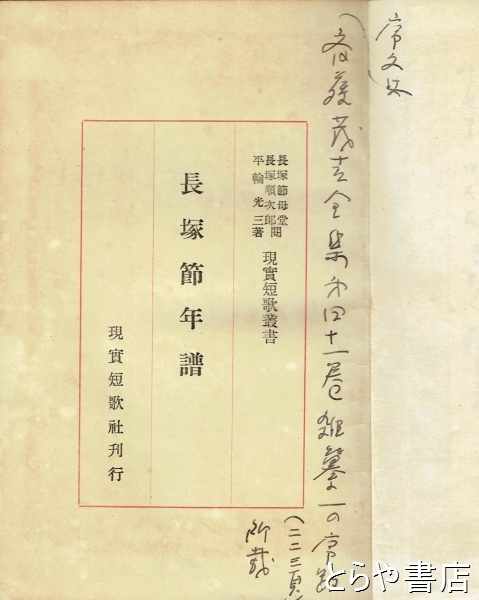 序文は
(斎藤茂吉全集第四十一巻雑纂一の序跋
(二二三頁)
所載
長塚節母堂
長塚順次郎閲
平輪光三著
現實短歌叢書
長塚節年譜
現實短歌社刊行
とらや書店